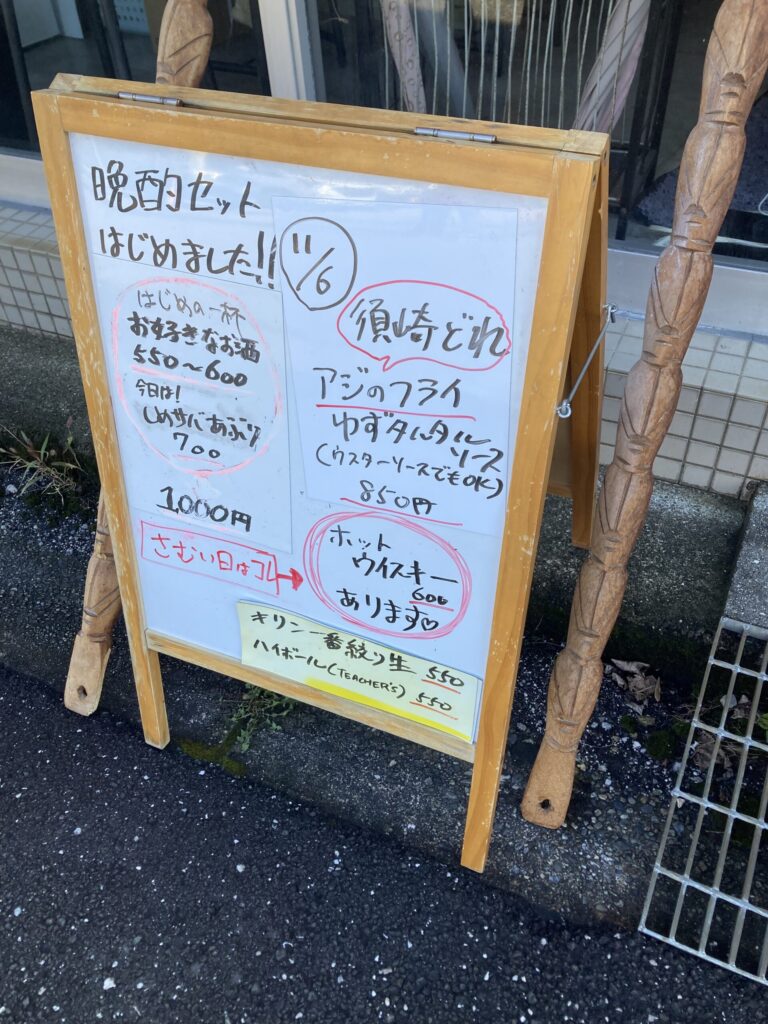 晩酌セット
はじめました!!
はじめの一杯
お好きなお酒
550〜600
今日は!
しめサバあぶり
700
1,000円
11/6
須崎どれ
アジのフライ
ゆずタルタル
ソース
(ウスターソースでもOK)
850円
さむい日はコレ→
ホット
ウイスキー
600
あります♡
キリン一番絞り生 550
ハイボール(TEACHER'S) 550